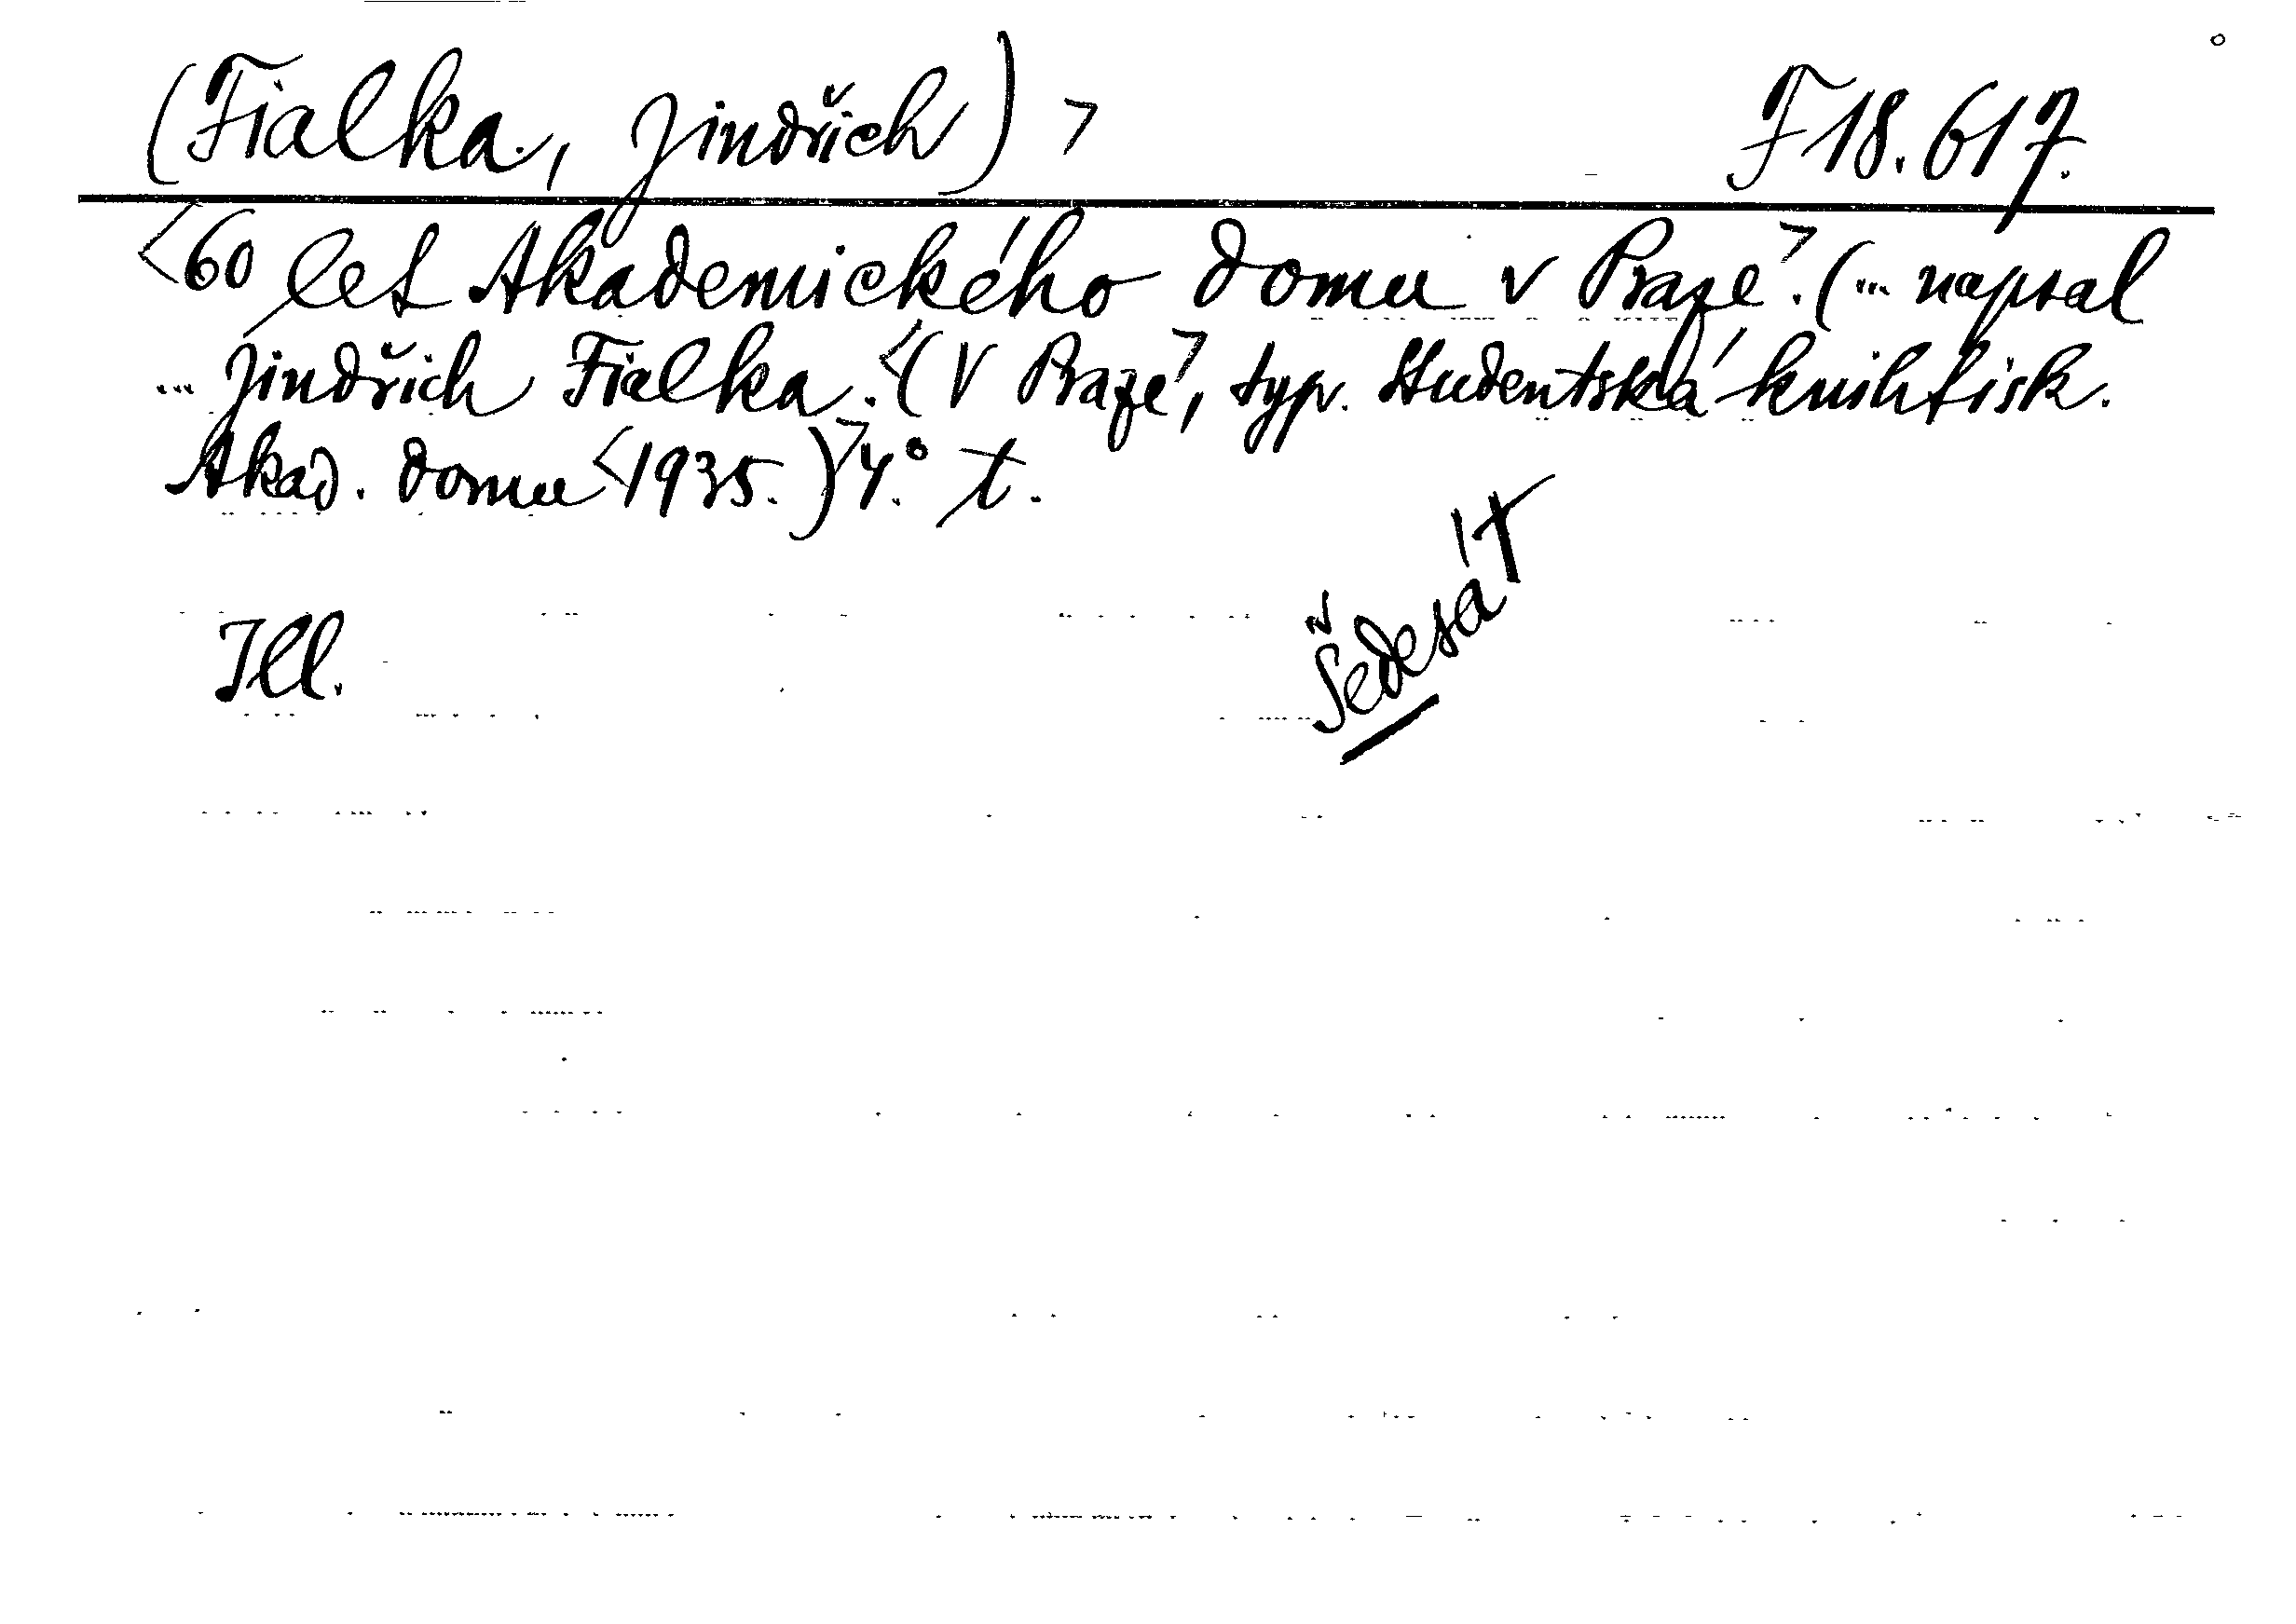 (Fialka, Jindřich) > F 18.617.
<60 let Akademického domu v Praze>. (... napsal
... Jindřich Fialka. <(V Praze>, typ. Studentská knihtisk.
Akad. domu <1935.)> 4.° t.
Šedesát
Ill.